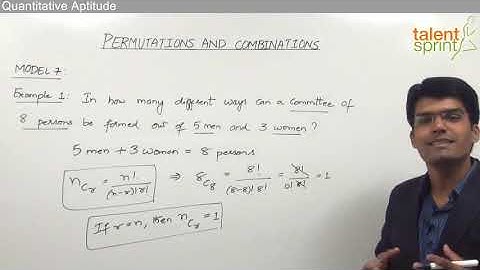 Quantitative Aptitude
talent
sprint
PERMUTATIONS AND COMBINATIONS
MODEL 7:
Example 1: In how many different ways can a committee of
8 persons be formed out of 5 men and 3 women?
5 men + 3 women = 8 persons
nCr = n! / (n-r)! r! ⇒ 8C8 = 8! / (8-8)! 8! = 8! / 0! 8! = 1
If r=n, then nCr = 1